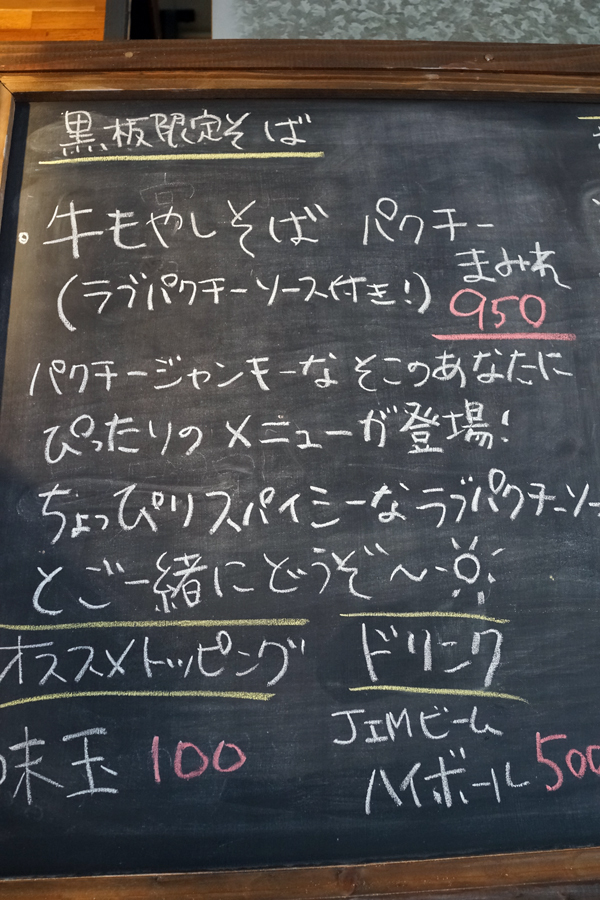 黒板限定そば
・牛もやしそば パクチー
まみれ
(ラブパクチーソース付き!) 950
パクチージャンキーな そこのあなたに
ぴったりの メニューが登場!
ちょっぴりスパイシーなラブパクチーソー
とご一緒にどうぞ〜
オススメトッピング
味玉 100
ドリンク
JIMビーム
ハイボール 500